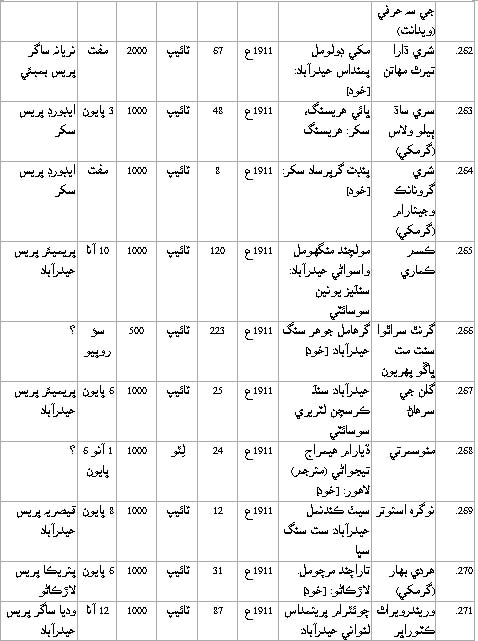 جي سہ حرفي
(ويدانت)
262. شري ڌارا مکي ڊولومل 1911ع 67 ٽائيپ 2000 مفت نريانہ ساگر
تيرٿ مهاتن پمنداس حيدرآباد: پريس بمبئي
[خود]
263. سري ساڌ ڀائي هريسنگ، 1911ع 48 ٽائيپ 1000 3 پايون ايڊورڊ پريس
ٻيلو ولاس سکر: هريسنگ سکر
(گرمکي)
264. شري پنڊت گرپرساد سکر: 1911ع 8 ٽائيپ 1000 مفت ايڊورڊ پريس
گرونانڪ [خود] سکر
وجيتارام
(گرمکي)
265. ڪسر مولچند منگهومل 1911ع 120 ٽائيپ 1000 10 آنا پريميئر پريس
ڪماري واسواڻي حيدرآباد: حيدرآباد
سٽڊيز يونين
سوسائٽي
266. گرنٿ سرائوا گرهامل جوهر سنگ 1911ع 223 ٽائيپ 500 سؤ ؟
سنت مت حيدرآباد: [خود] روپيو
ڀاڱو پهريون
267. گلن جي حيدرآباد سنڌ 1911ع 25 ٽائيپ 1000 6 پايون پريميئر پريس
سرهاڻ ڪرسچن لٽريري حيدرآباد
سوسائٽي
268. منوسمرتي ڏيارام هيمراج 1911ع 24 لِٿو 1000 1 آنو 6 ؟
تيجواڻي (مترجم) پايون
لاهور: [خود]
269. نوگره استوتر سيٺ ڪندنمل 1911ع 12 ٽائيپ 1000 8 پايون قيصريہ پريس
حيدرآباد: ست سنگ حيدرآباد
سڀا
270. هردي بهار تاراچند مرچومل 1911ع 31 ٽائيپ 1000 6 پايون پتريڪا پريس
(گرمکي) لاڙڪاڻو: [خود] لاڙڪاڻو
271. وريندرويراٿ چوئٿرام پريتمداس 1911ع 87 ٽائيپ 1000 12 آنا وديا ساگر پريس
ڪٿوراير لنواني حيدرآباد حيدرآباد